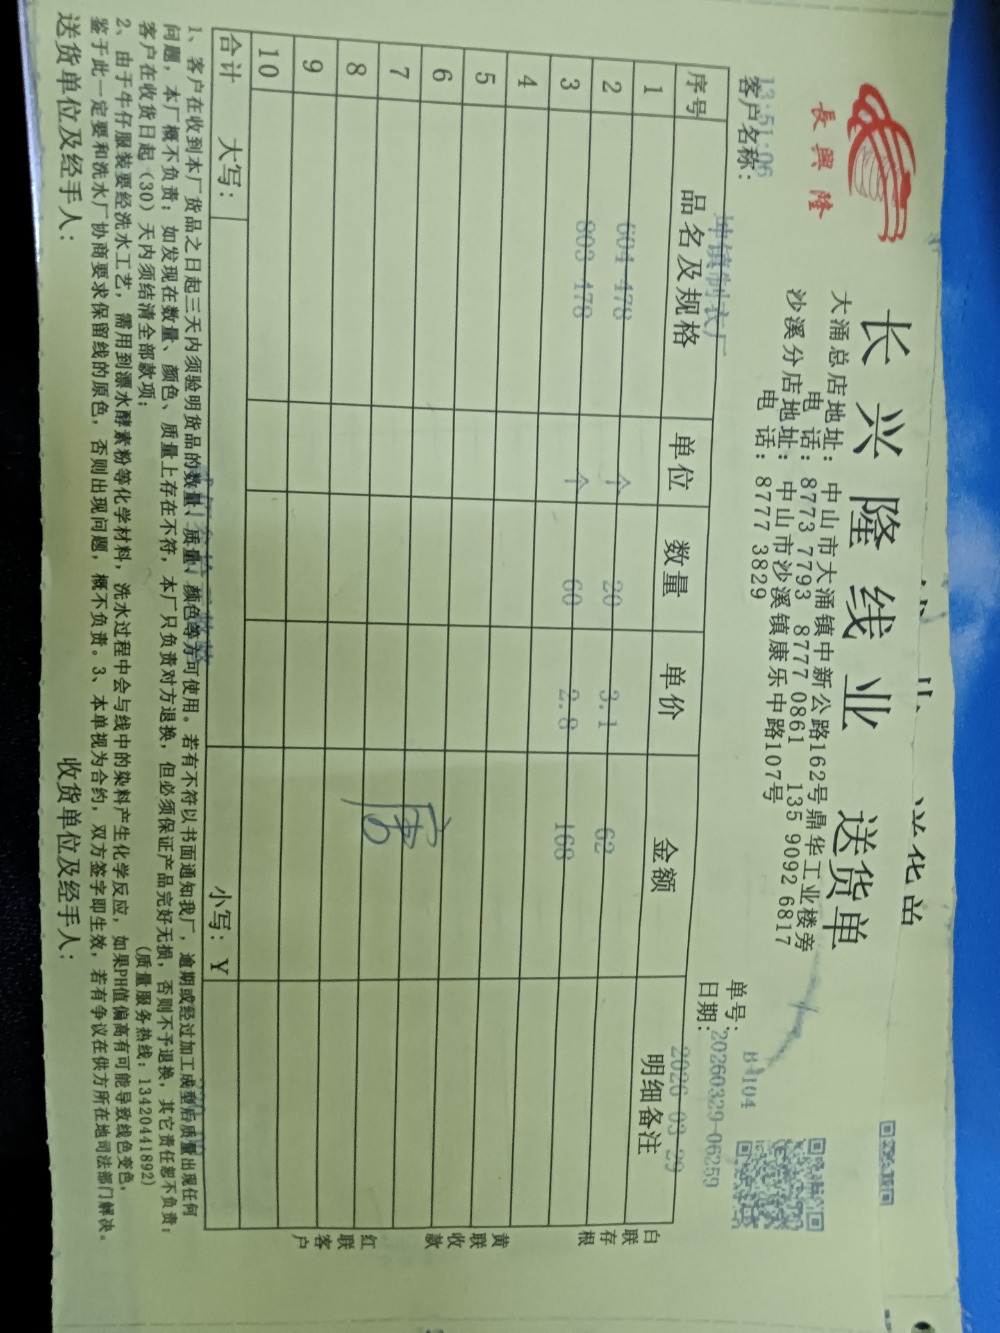 長興隆
长兴隆线业 送货单
大涌总店地址：中山市大涌镇中新公路162号鼎华工业楼旁
电 话：8773 7793 8777 0861 135 9092 6817
沙溪分店地址：中山市沙溪镇康乐中路107号
电 话：8777 3829
13:51:06
B4104
客户名称：
坤镇制衣厂
单号：20260329-06259
日期：2026 03 29
序号 品名及规格 单位 数量 单价 金额 明细备注
1 604 478 个 20 3.1 62
2 803 478 个 60 2.8 168
3
4
5
6
7
8
9
10
合计 大写： 小写：￥
白联存根
黄联收款
红联客户
1、客户在收到本厂货品之日起三天内须验明货品的数量、质量、颜色等方可使用。若有不符以书面通知我厂，逾期或经过加工成型后质量出现任何
问题，本厂概不负责；如发现在数量、颜色、质量上存在不符，本厂只负责对方退换，但必须保证产品完好无损，否则不予退换，其它责任恕不负责；
客户在收货日起（30）天内须结清全部款项； （质量服务热线：13420441892）
2、由于牛仔服装要经洗水工艺，需用到漂水酵素粉等化学材料，洗水过程中会与线中的染料产生化学反应，如果PH值偏高有可能导致线色变色，
鉴于此一定要和洗水厂协商要求保留线的原色，否则出现问题，概不负责。3、本单视为合约，双方签字即生效，若有争议在供方所在地司法部门解决。
送货单位及经手人： 收货单位及经手人：